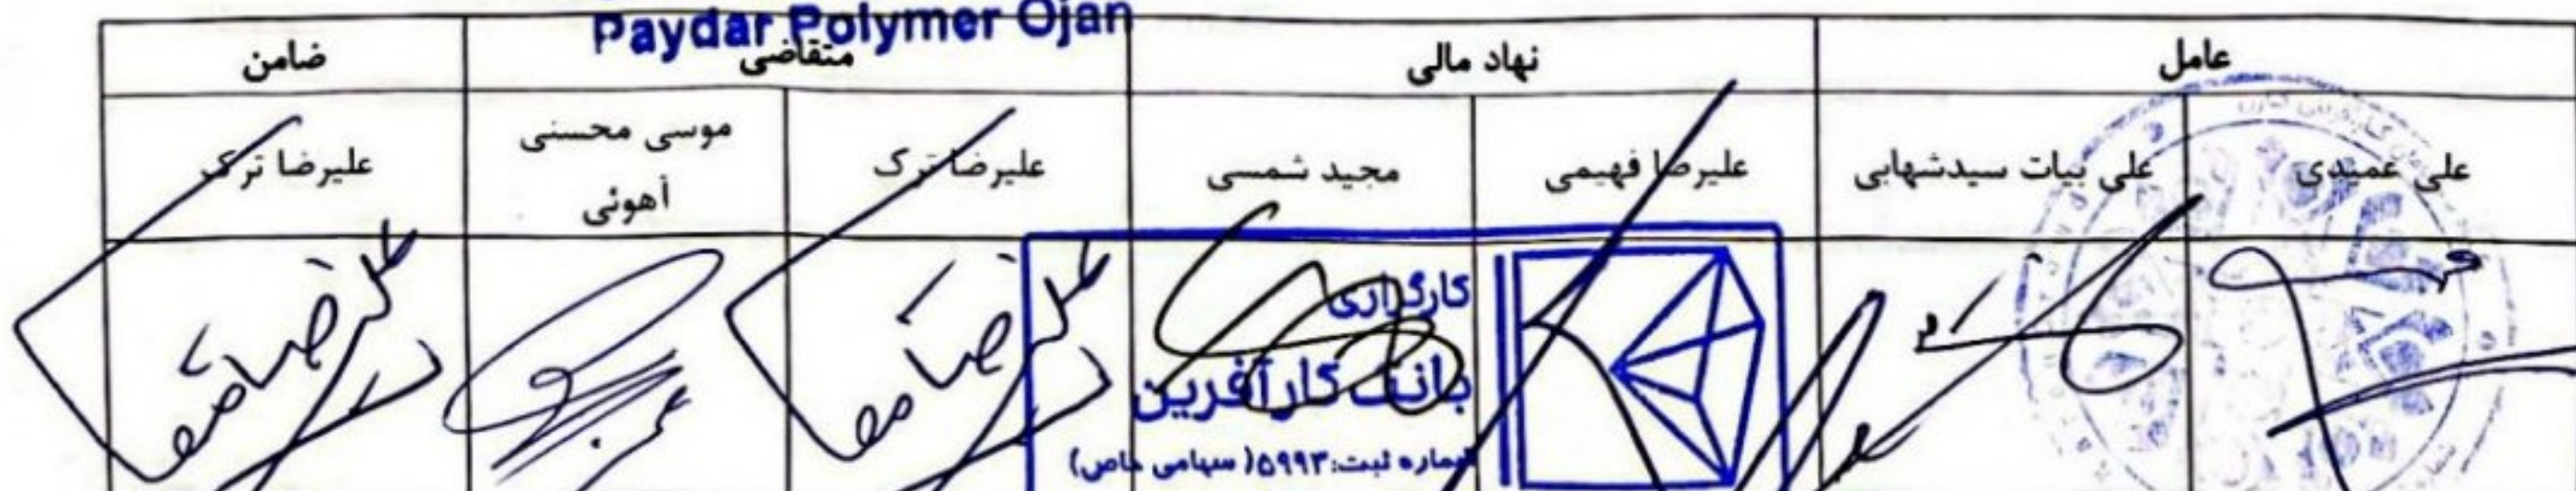 Paydar Polymer Ojan
عامل
نهاد مالی
متقاضی
ضامن
علی عمیدی
علی بیات سیدشهابی
علیرضا فهیمی
مجید شمسی
علیرضا ترک
موسی محسنی
آهوئی
علیرضا ترک
کارگزاری
بانک کارآفرین
شماره ثبت:۵۹۹۳( سهامی خاص)